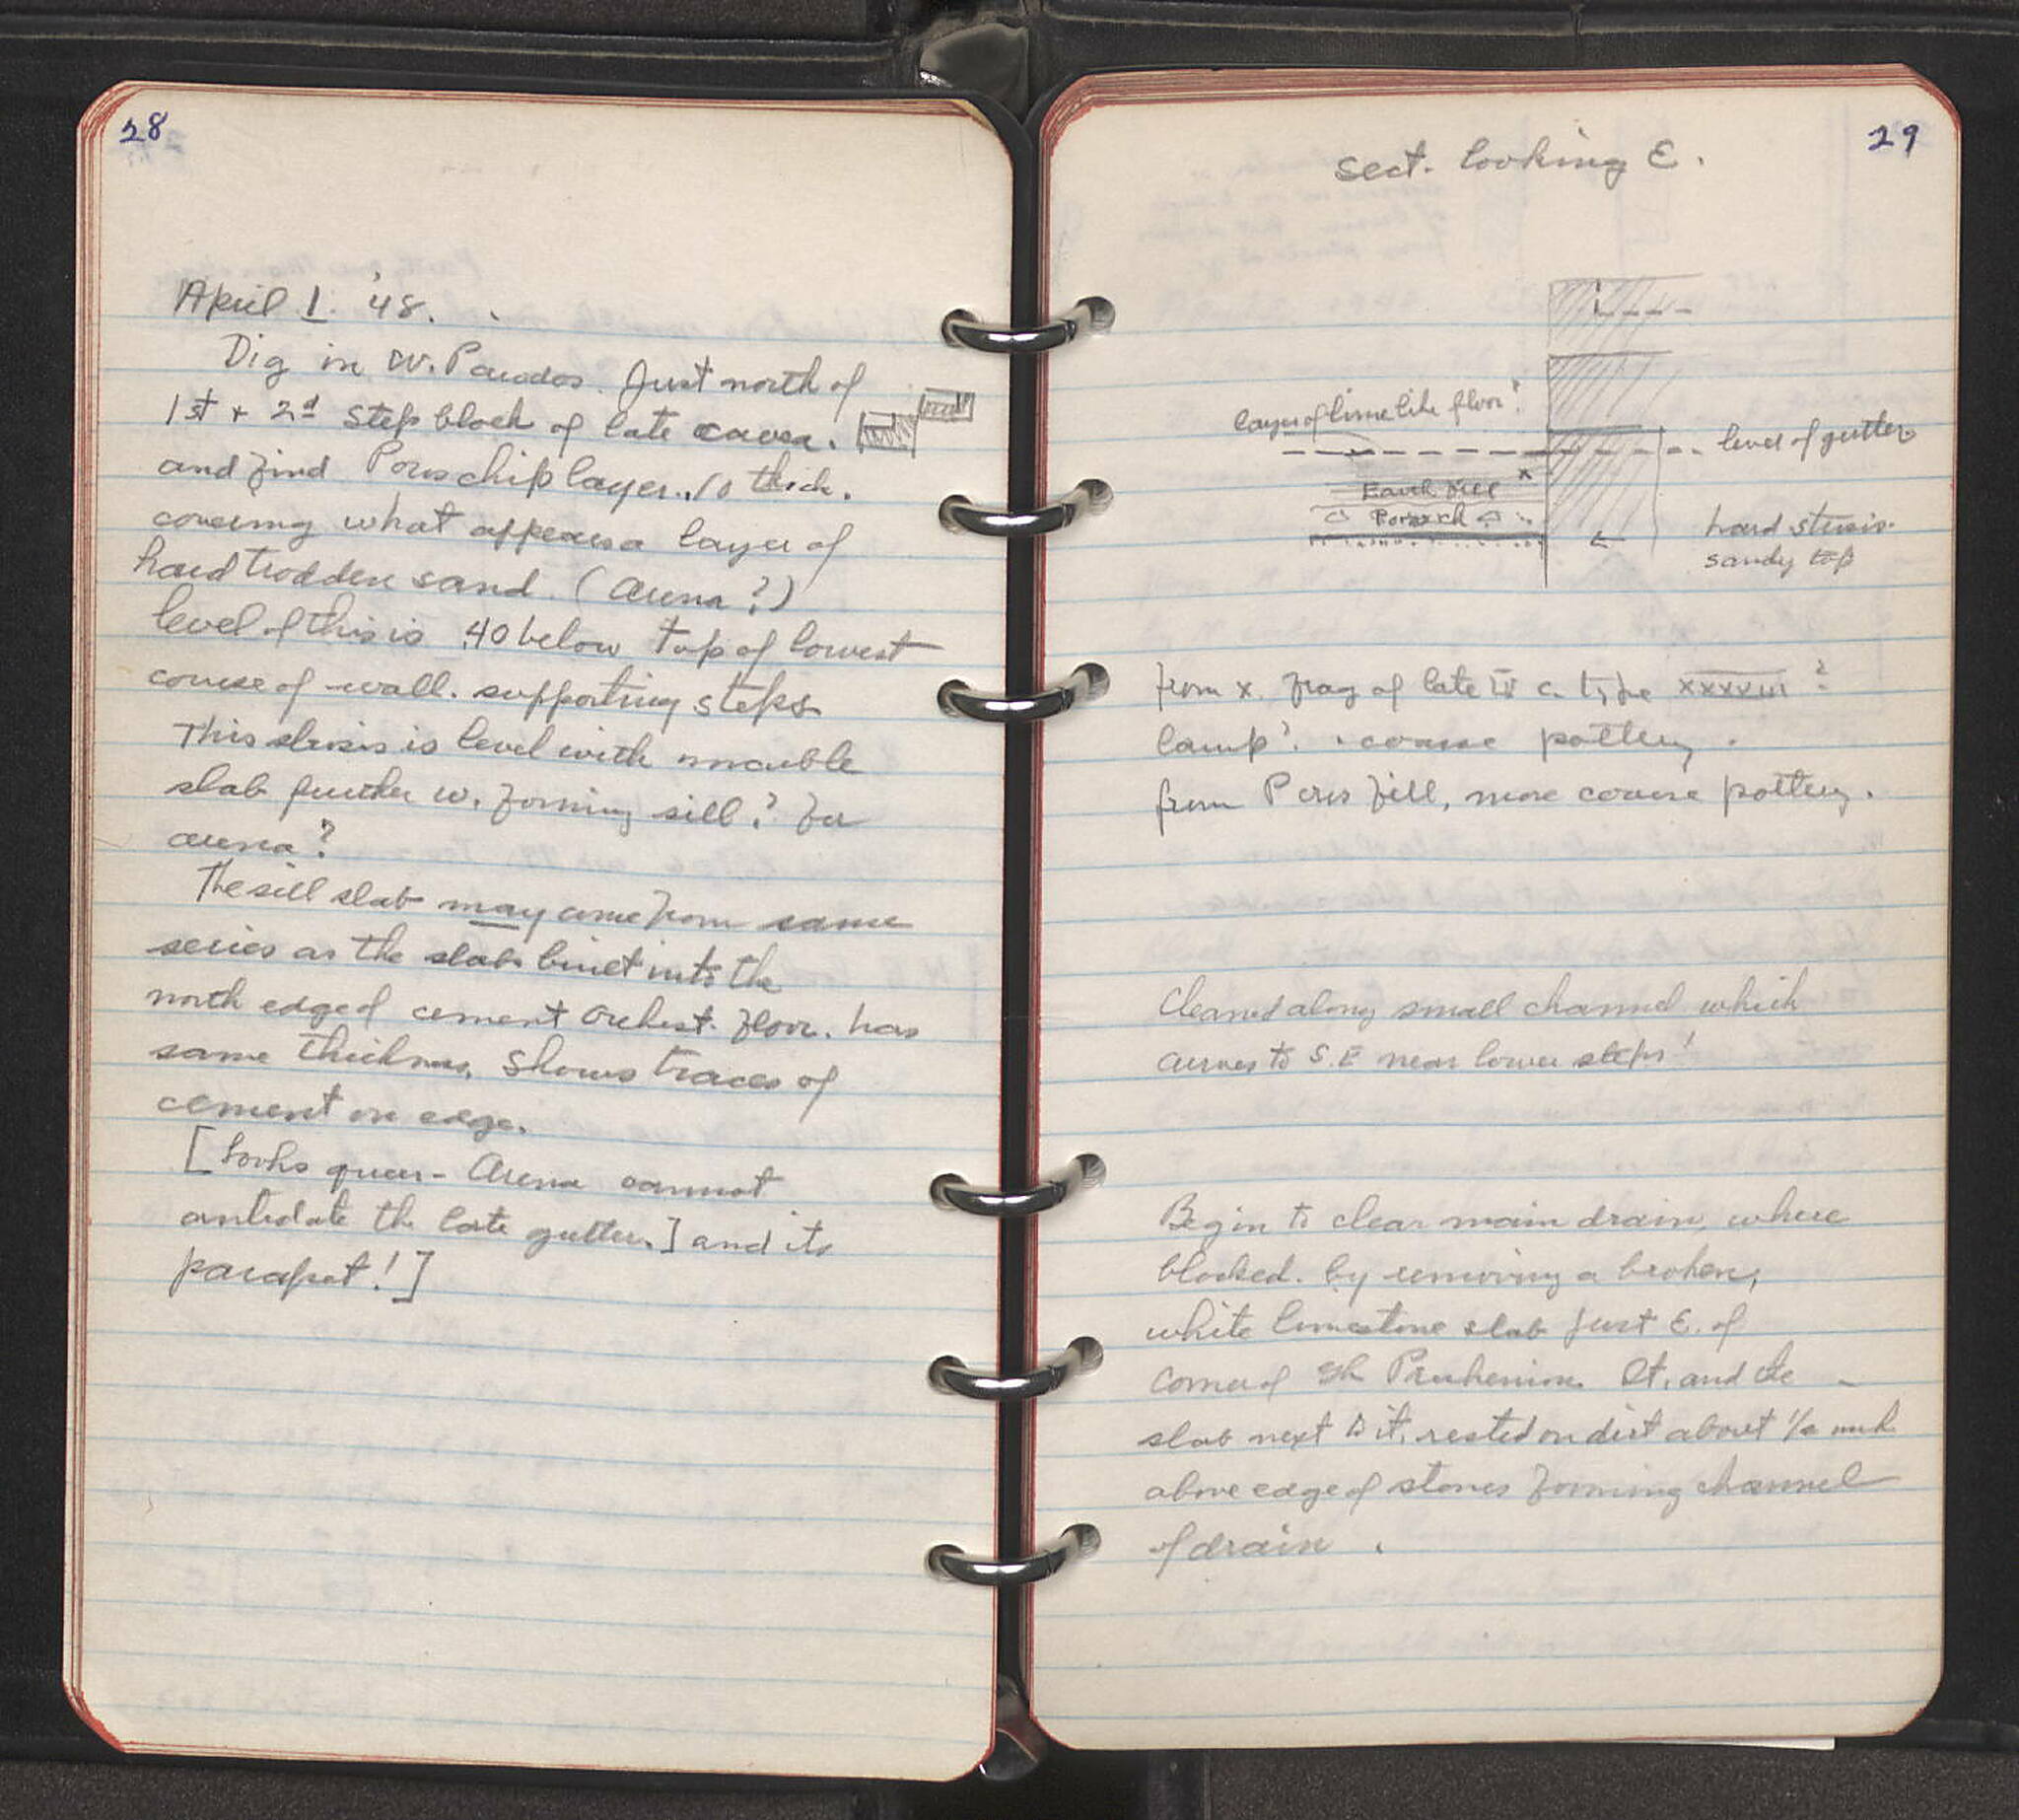 28
April 1. '48.
Dig in W. Parodos. Just north of
1st + 2d step block of late cavea.
and find Poros chip layer .10 thick.
covering what appears a layer of
hard trodden sand. (Arena?)
level of this is .40 below top of lowest
course of wall. supporting steps
This stosis is level with marble
slab further W. forming sill? for
arena?
The sill slab may come from same
series as the slabs built into the
north edge of cement orchest. floor. has
same thickness, shows traces of
cement on edge.
[Looks queer - Arena cannot
antedate the late gutter.] and its
parapet!]
29
Sect. looking E.
layer of lime like floor?
level of gutter
Earth fill x
Poros ch
hard stosis.
sandy top
from x. frag of late IV c. type XXXVIII?
lamp?. coarse pottery.
from Poros fill, more coarse pottery.
Cleaned along small channel which
curves to S.E near lower steps!
Begin to clear main drain, where
blocked. by removing a broken,
white limestone slab just E. of
corner of Proskenion. It, and the
slab next to it, rested on dirt about 1/2
above edge of stones forming channel
of drain.